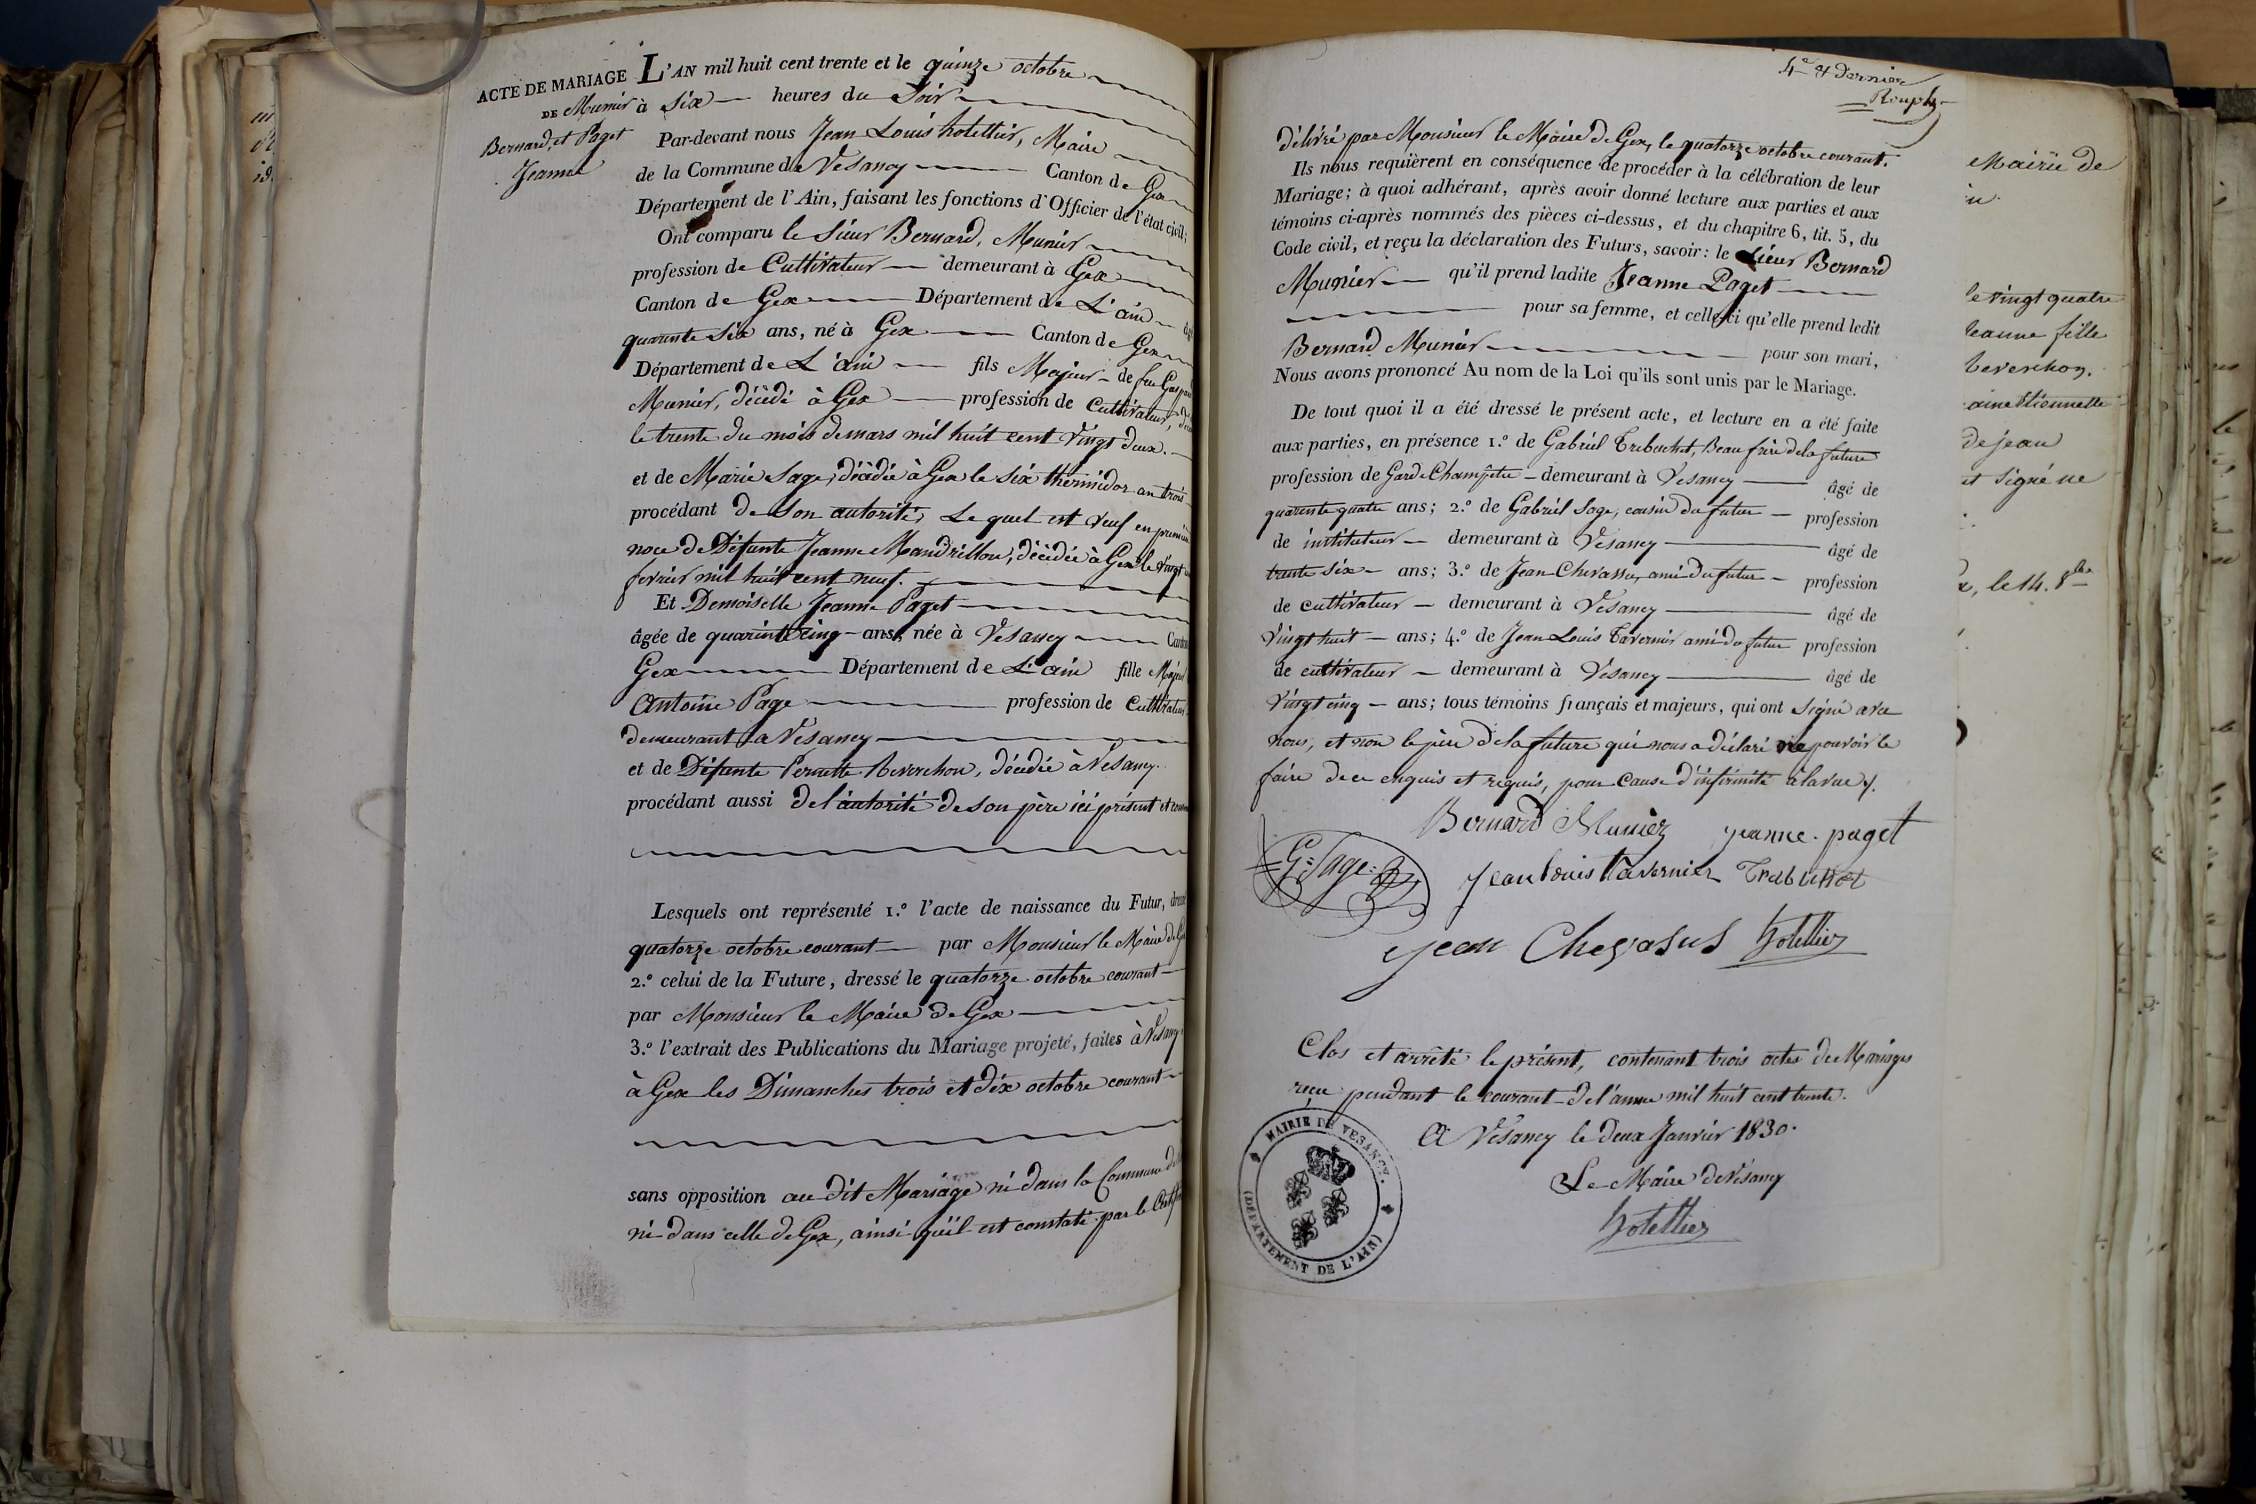 ACTE DE MARIAGE
DE Munier
Bernard, et Paget
Jeanne
L'AN mil huit cent trente et le quinze octobre
à six heures du Soir
Par-devant nous Jean Louis hotellier, Maire
de la Commune de Vesancy Canton de Gex
Département de l'Ain, faisant les fonctions d'Officier de l'état civil;
Ont comparu le Sieur Bernard, Munier
profession de Cultivateur demeurant à Gex
Canton de Gex Département de L'ain
quarente six ans, né à Gex Canton de Gex
Département de L'ain fils Majeur de feu
Munier, décédé à Gex profession de Cultivateur,
le trente du mois de mars mil huit cent vingt deux.
et de Marie Sage, décédée à Gex le six thermidor an trois
procédant de son autorité, Le quel est veuf en
noce de Défunte Jeanne Mandrillon, décédée à Gex le vingt
fevrier mil huit cent neuf.
Et Demoiselle Jeanne Paget
âgée de quarinte cinq ans, née à Vesancy
Gex Département de L'ain fille
Antoine Page profession de Cultivateur
demeurant à Vesancy
et de Défunte Pernette Reverchon, décédée à Vesancy.
procédant aussi de l'autorité de son père ici présent et
Lesquels ont représenté 1.º l'acte de naissance du Futur,
quatorze octobre courant par Monsieur le Maire de
2.º celui de la Future, dressé le quatorze octobre courant
par Monsieur le Maire de Gex
3.º l'extrait des Publications du Mariage projeté, faites à Vesancy
à Gex les Dimanches trois et dix octobre courant
sans opposition au dit Mariage ni dans la Commune
ni dans celle de Gex, ainsi qu'il est constaté par le
4e et dernier
délivré par Monsieur le Maire de Gex, le quatorze octobre courant.
Ils nous requièrent en conséquence de procéder à la célébration de leur
Mariage; à quoi adhérant, après avoir donné lecture aux parties et aux
témoins ci-après nommés des pièces ci-dessus, et du chapitre 6, tit. 5, du
Code civil, et reçu la déclaration des Futurs, savoir: le Sieur Bernard
Munier qu'il prend ladite Jeanne Paget
pour sa femme, et celle-ci qu'elle prend ledit
Bernard Munier pour son mari,
Nous avons prononcé Au nom de la Loi qu'ils sont unis par le Mariage.
De tout quoi il a été dressé le présent acte, et lecture en a été faite
aux parties, en présence 1.º de Gabriel Trebuchet, Beau frère de la future
profession de Garde Champêtre demeurant à Vesancy âgé de
quarente quatre ans; 2.º de Gabriel Sage, cousin du futur profession
de instituteur demeurant à Vesancy âgé de
trente six ans; 3.º de Jean Chevassu, ami du futur profession
de cultivateur demeurant à Vesancy âgé de
vingt huit ans; 4.º de Jean Louis Tavernier ami du futur profession
de cultivateur demeurant à Vesancy âgé de
vingt cinq ans; tous témoins français et majeurs, qui ont signé avec
nous, et non le père de la future qui nous a déclaré ne pouvoir le
faire de ce enquis et requis, pour cause d'infirmité à la vue
Bernard Munier jeanne paget
G Sage jean louis tavernier Trebuchet
jean Chevasus hotellier
Clos et arrêté le présent, contenant trois actes de Mariages
reçu pendant le courant de l'année mil huit cent trente.
A Vesancy le deux Janvier 1830.
Le Maire de Vesancy
hotellier
MAIRIE DE VESANCY.
(DÉPARTEMENT DE L'AIN)
Mairie de
le vingt quatre
Jeanne fille
Reverchon.
de jean
et signé ne
le 14. 8bre